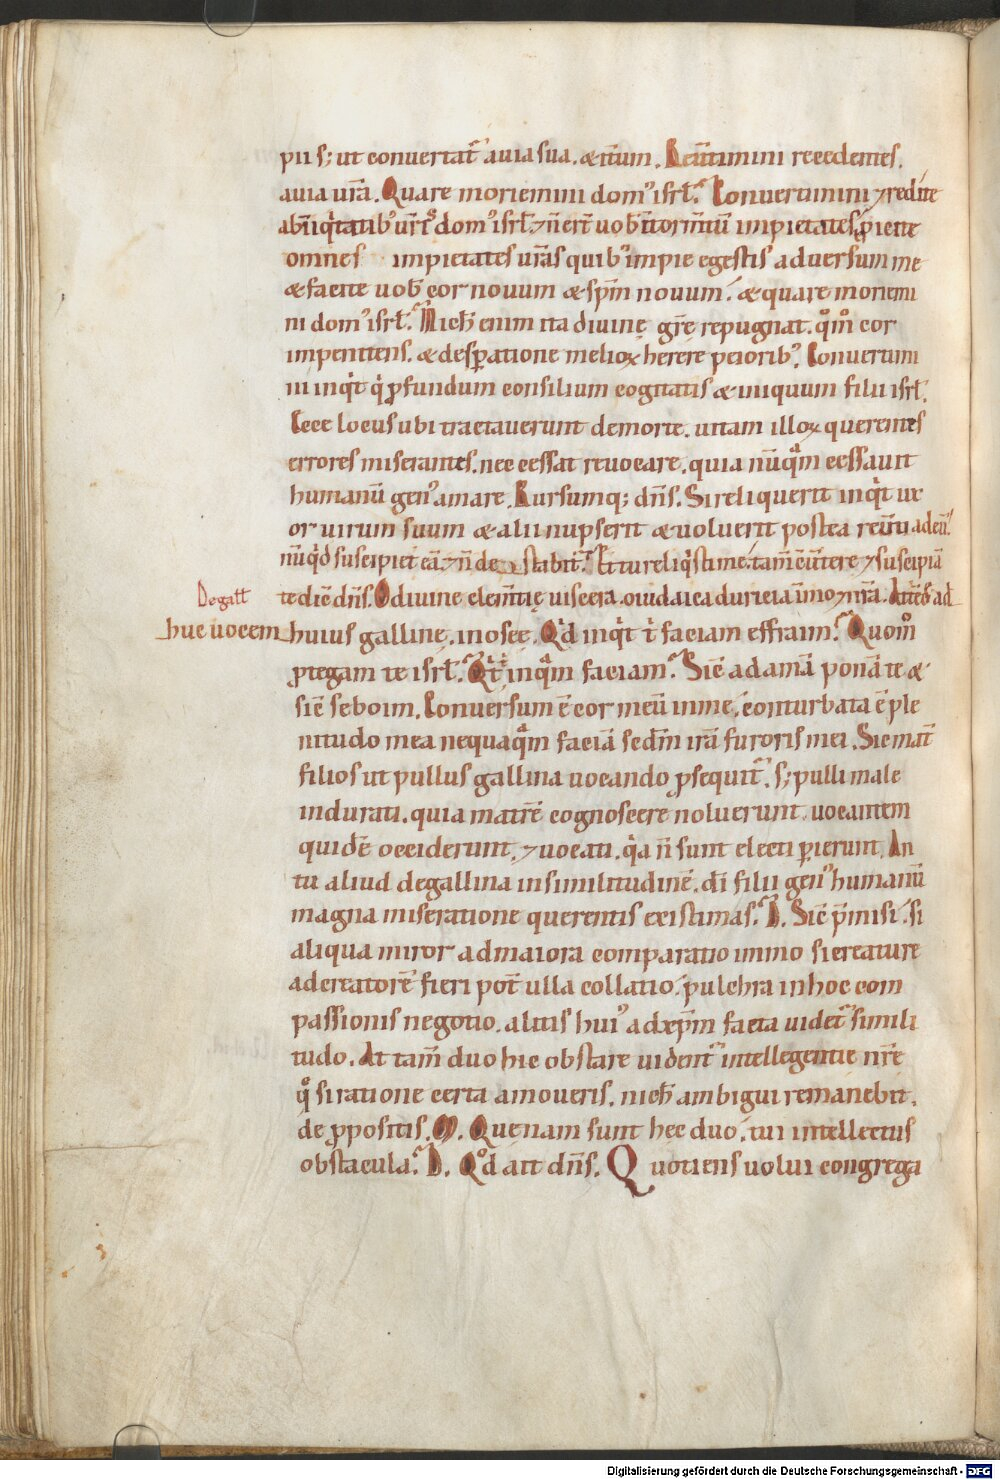 pii s; ut convertat᷑ a via sua. & it̄um. Reūtimini recedentes.
a via vr̄a. Quare moriemini dom' isrl̄. Convertimini ⁊ redite
ab iniq̇tatib' vr̄is dom' isrl̄. ⁊ n̄ erit̄ vob̄ it̄ormt̄um impietates. proicite
omnes impietates vr̄as quib' impie egestis adversum me
& facite vob̄ cor novum & sp̄m novum. & quare moriemi
ni dom' isrl̄. Nich̄ enim ita divinę gr̄ę repugnat. qm̊ cor
impenitens. & desꝑatione melioꝝ herere peiorib'. Convertimi
ni inq̇t q̇ ꝓfundum consilium cogitatis & iniquum filii isrl̄.
Ecce locus ubi tractaverunt de morte. vitam illoꝝ querentes
errores miserantes. nec cessat revocare. quia nūqᷓm cessavit
humanū gen' amare. Rursumq; dn̄s. Si reliquerit inq̇t ux
or virum suum & alii nupserit & voluerit postea reūti ad eū.
nūq̇d suscipiet eā ⁊ n̄ detestabit᷑. Et tu reliq̇sti me. tam̄ reūtere ⁊ suscipiā
te dic̄ dn̄s. O divine clem̄tię viscera. o iudaica duricia īmo ⁊ nr̄a. Att̄ed̄ ad
De gall̄
huc vocem huius gallinę. in osee. Qḋ inq̇t t̄ faciam effraim. Quom̊
ꝓtegam te isrl̄. Qḋ t̄ inqᷓm faciam. Sic̄ adamā ponā te &
sic̄ seboim. Conversum ē cor meū in me. conturbata ē ple
nitudo mea nequaqᷓm faciā sedm̄ irā furoris mei. Sic mat̄
filios ut pullus gallina vocando ꝓsequit᷑. s; pulli male
indurati. quia matrē cognoscere noluerunt. vocantem
quidē occiderunt. ⁊ vocati. q̇a n̄ sunt electi ꝑierunt. An
tu aliud de gallina in similitudinē. dī filii gen' humanū
magna miseratione querentis existimas. D. Sic̄ p̄misi. si
aliqua miror ad maiora comparatio immo si creature
ad creatorē fieri pot̄ ulla collatio. pulchra in hoc com
passionis negotio. alitis hui' ad xp̄m facta videt᷑ simili
tudo. At tam̄ duo hic obstare vident᷑ intellegentie nr̄e
q̊ si ratione certa amoveris. nich̄ ambigui remanebit.
de ꝓpositis. M. Quenam sunt hec duo. tui intellectus
obstacula. D. Qd̊ ait dn̄s. Quotiens volui congrega
Digitalisierung gefördert durch die Deutsche Forschungsgemeinschaft - DFG